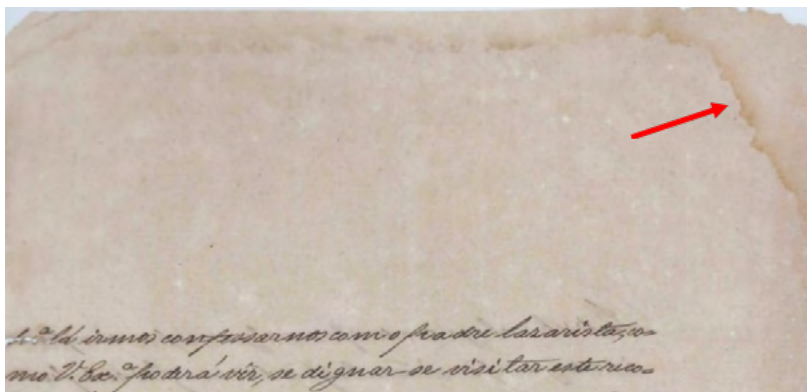 p.ª lá irmos confessarnos com o padre lazarista, co=
mo V. Ex.ª poderá vir, se dignar-se visitar este rico=